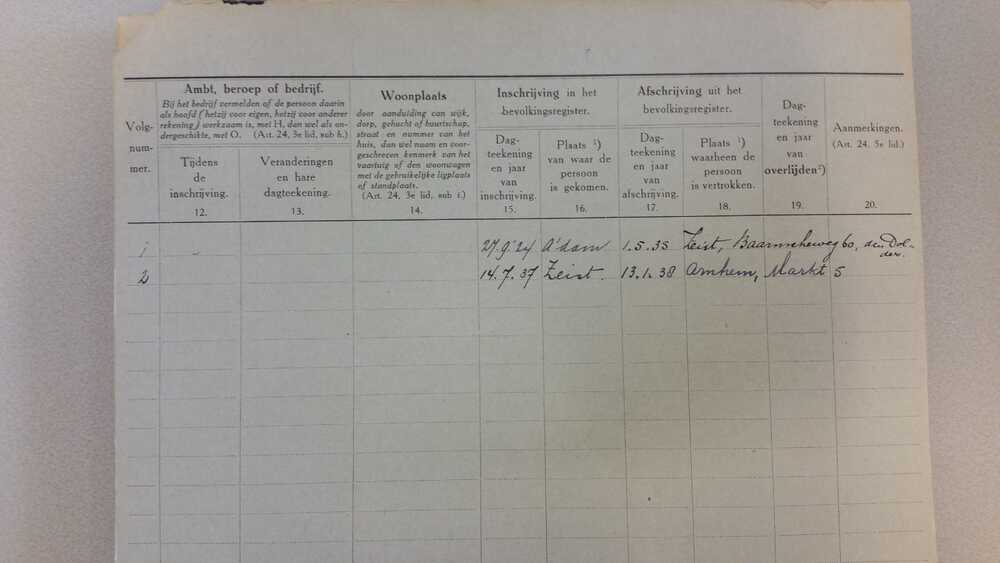 Volg-
num-
mer.
Ambt, beroep of bedrijf.
Bij het bedrijf vermelden of de persoon daarin
als hoofd (hetzij voor eigen, hetzij voor anderer
rekening) werkzaam is, met H, dan wel als on-
dergeschikte, met O. (Art. 24, 3e lid, sub h.)
Tijdens
de
inschrijving.
12.
Veranderingen
en hare
dagteekening.
13.
Woonplaats
door aanduiding van wijk,
dorp, gehucht of buurtschap,
straat en nummer van het
huis, dan wel naam en voor-
geschreven kenmerk van het
vaartuig of den woonwagen
met de gebruikelijke ligplaats
of standplaats.
(Art. 24, 3e lid, sub i.)
14.
Inschrijving in het
bevolkingsregister.
Dag-
teekening
en jaar
van
inschrijving.
15.
Plaats ¹)
van waar de
persoon
is gekomen.
16.
Afschrijving uit het
bevolkingsregister.
Dag-
teekening
en jaar
van
afschrijving.
17.
Plaats ¹)
waarheen de
persoon
is vertrokken.
18.
Dag-
teekening
en jaar
van
overlijden²)
19.
Aanmerkingen.
(Art. 24, 5e lid.)
20.
1 27.9.'24 A'dam 1.5.35 Zeist, 60, den Dol-
der.
2 14.7.37 Zeist. 13.1.38 Arnhem, Markt 5